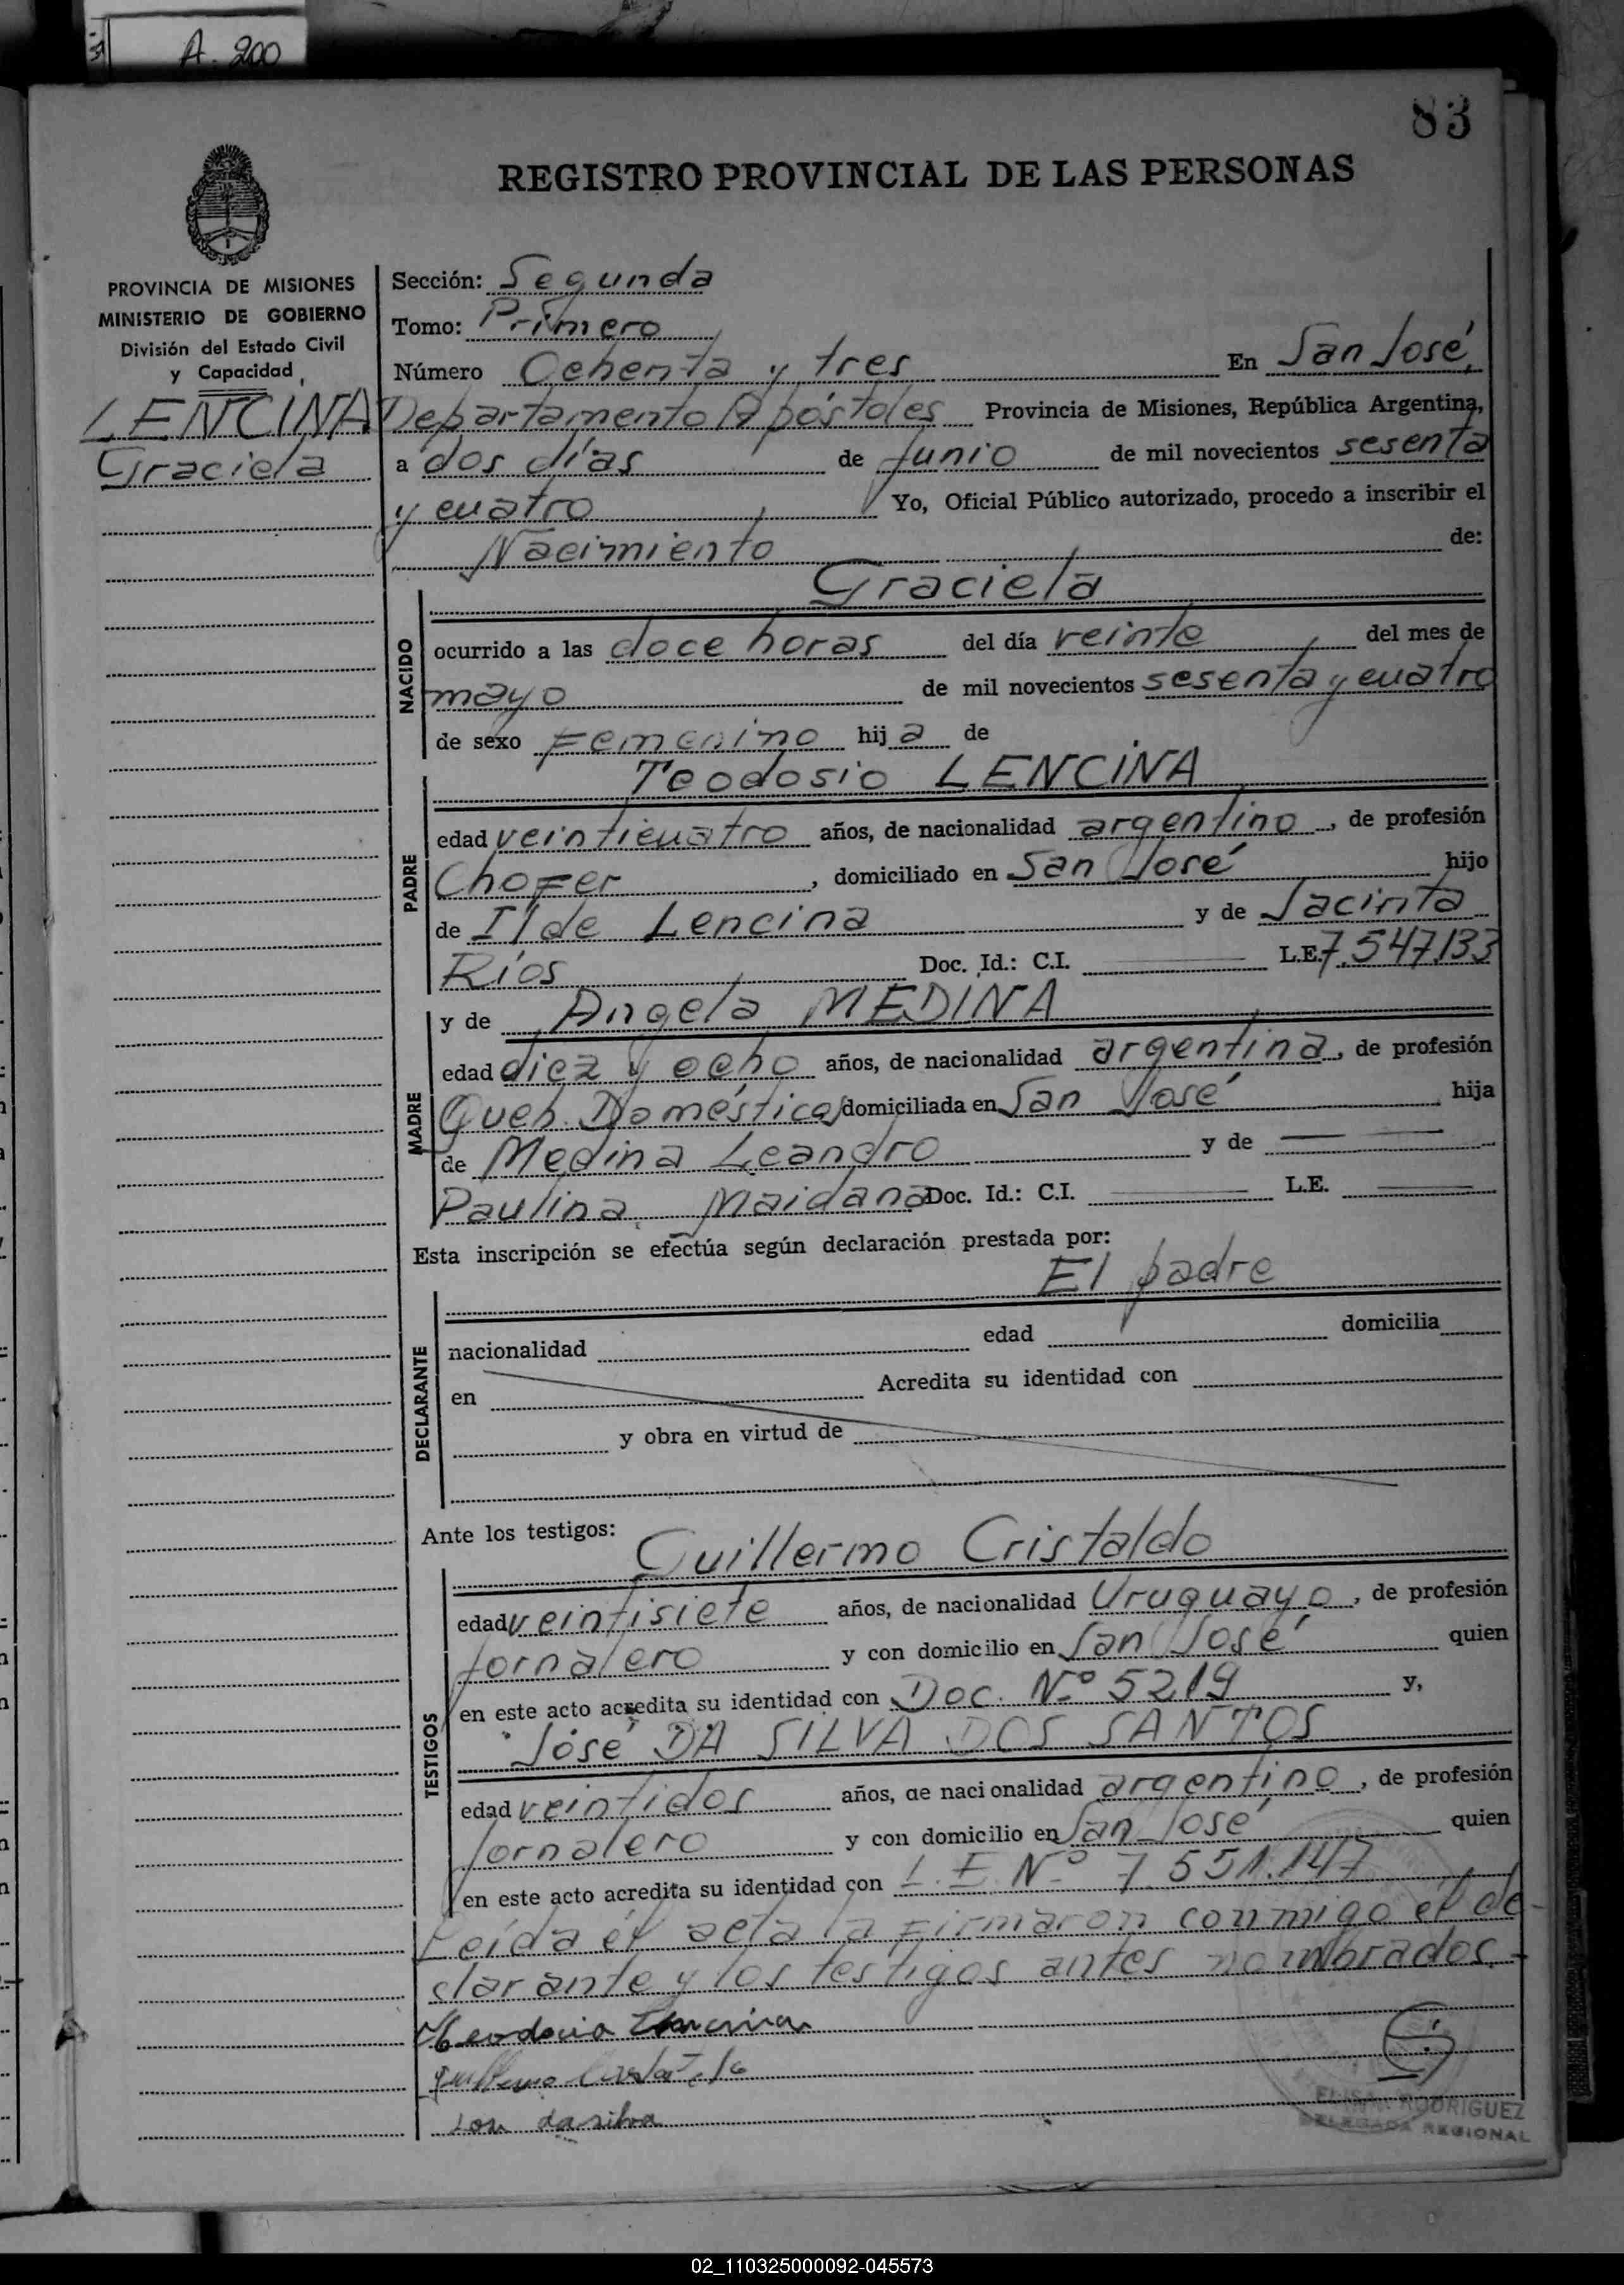 A. 200
83
REGISTRO PROVINCIAL DE LAS PERSONAS
PROVINCIA DE MISIONES
MINISTERIO DE GOBIERNO
División del Estado Civil
y Capacidad
LENCINA
Graciela
Sección: Segunda
Tomo: Primero
Número Ochenta y tres En San José,
Departamento Apóstoles Provincia de Misiones, República Argentina,
a dos días de Junio de mil novecientos sesenta
y cuatro Yo, Oficial Público autorizado, procedo a inscribir el
Nacimiento de:
Graciela
NACIDO
ocurrido a las doce horas del día veinte del mes de
mayo de mil novecientos sesenta y cuatro
de sexo Femenino hija de
Teodosio LENCINA
PADRE
edad veinticuatro años, de nacionalidad argentino, de profesión
Chofer, domiciliado en San José hijo
de Ilde Lencina y de Jacinta
Ríos Doc. Id.: C.I. L.E. 7.547.133
MADRE
y de Angela MEDINA
edad diez y ocho años, de nacionalidad argentina, de profesión
Queh. Domésticos domiciliada en San José hija
de Medina Leandro y de
Paulina Maidana Doc. Id.: C.I. L.E.
Esta inscripción se efectúa según declaración prestada por:
El padre
DECLARANTE
nacionalidad edad domicilia
en Acredita su identidad con
y obra en virtud de
Ante los testigos:
Guillermo Cristaldo
TESTIGOS
edad veintisiete años, de nacionalidad Uruguayo, de profesión
Jornalero y con domicilio en San José quien
en este acto acredita su identidad con Doc. Nº 5219 y,
José DA SILVA DOS SANTOS
edad veintidos años, de nacionalidad argentino, de profesión
Jornalero y con domicilio en San José quien
en este acto acredita su identidad con L.E. Nº 7.551.147
Leída el acta la firmaron conmigo el de-
clarante y los testigos antes nombrados.-
da silva
ELISA RODRIGUEZ
DELEGADA REGIONAL
02_110325000092-045573